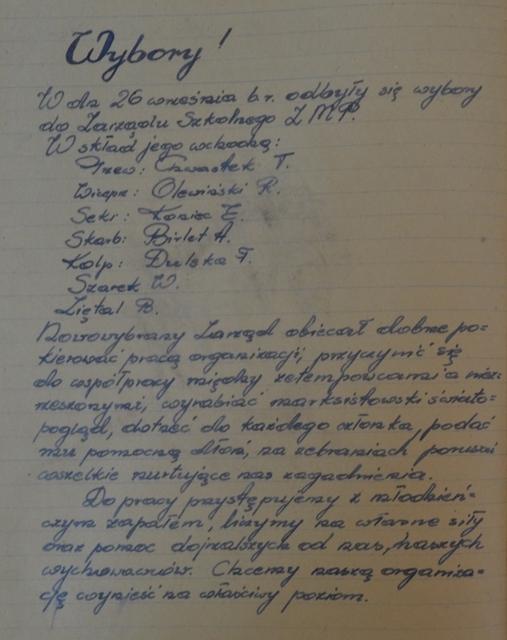 Wybory!
W dn 26 września b.r. odbyły się wybory
do Zarządu Szkolnego Z M P.
W skład jego wchodzą:
Przew: Chwastek T.
Wicepr: Olewiński R.
Sekr: Koniec E.
Skarb: Birlet A.
Kolp: Dulska T.
Szarek W.
Ziętal B.
Nowowybrany Zarząd obiecał dobrze po-
kierować pracą organizacji, przyczynić się
do współpracy między zetempowcami a niez-
rzeszonymi, wyrabiać marksistowski świato-
pogląd, dotrzeć do każdego członka, podać
mu pomocną dłoń, na zebraniach poruszać
wszelkie nurtujące nas zagadnienia.
Do pracy przystępujemy z młodzień-
czym zapałem, liczymy na własne siły
oraz pomoc dojrzalszych od nas, naszych
wychowawców. Chcemy naszą organiza-
cję wynieść na właściwy poziom.